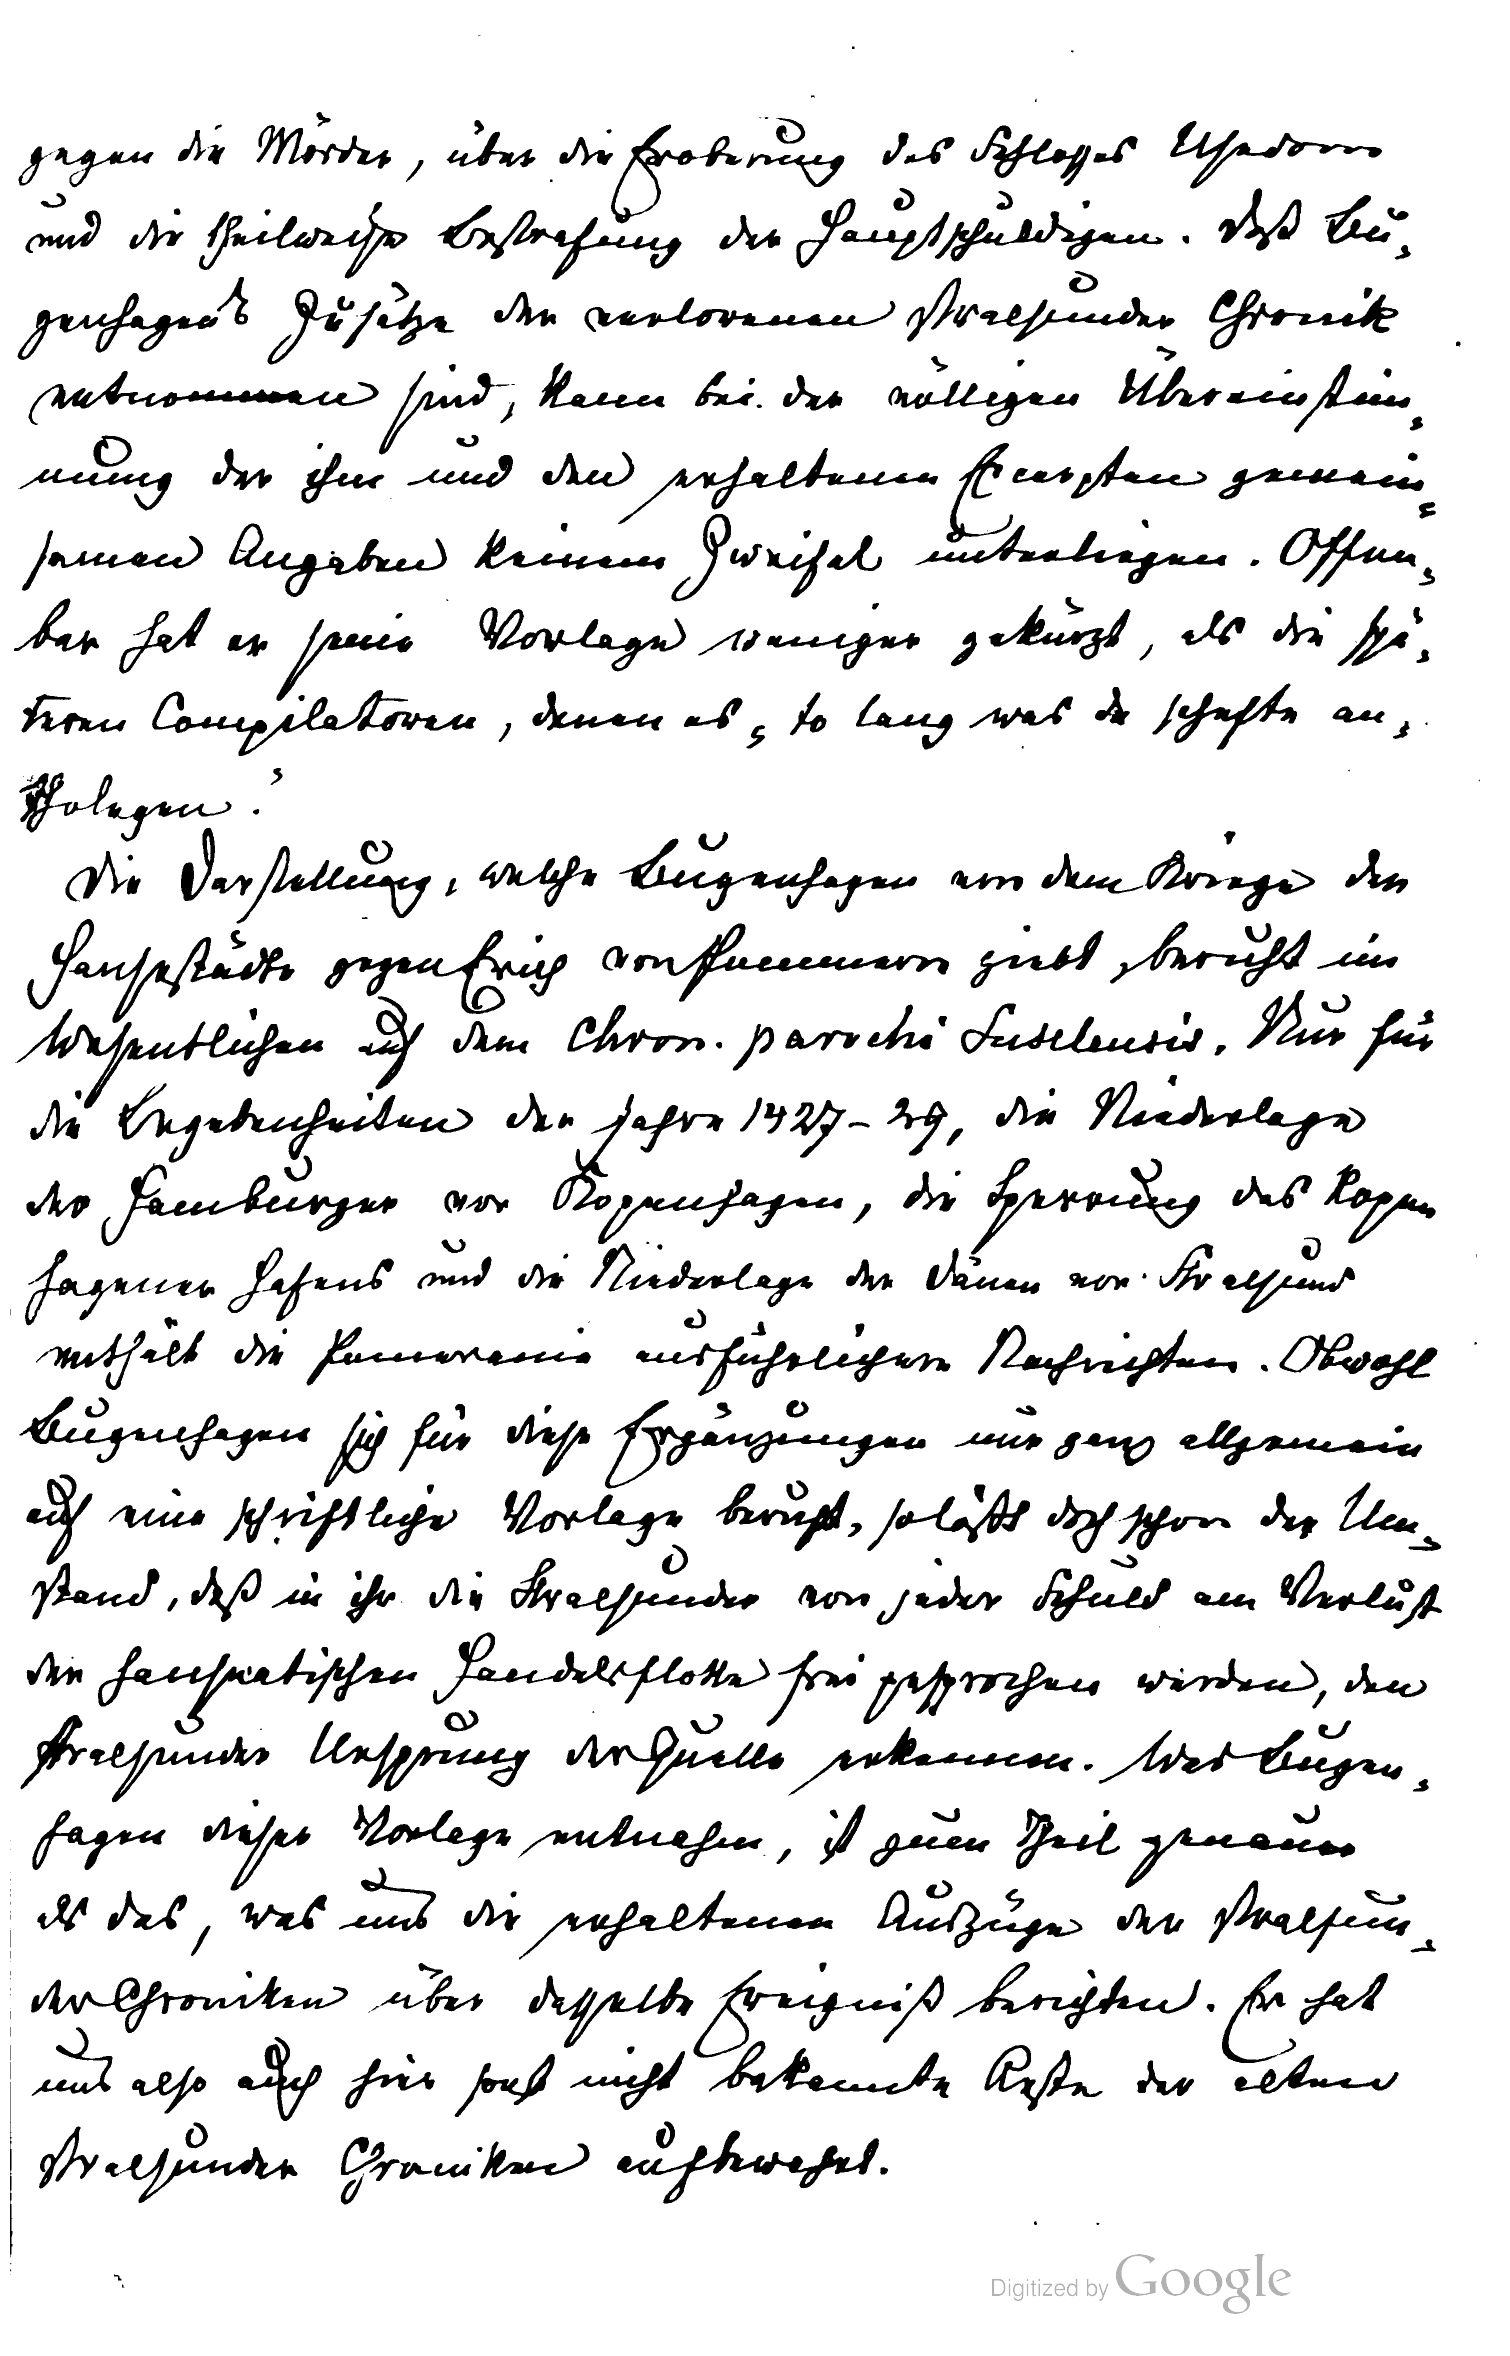 gegen die Mörder, über die Eroberung des Schlosses Usedom
und die theilweise Bestrafung der Hauptschuldigen. Daß Bu-
genhagen's Zusätze der verlorenen stralsunder Chronik
entnommen sind, kann bei der völligen Übereinstim-
mung der ihm und den erhaltenen Excerpten gemein-
samen Angaben keinem Zweifel unterliegen. Offen-
bar hat er seine Vorlage weniger gekürzt, als die spä-
teren Compilatoren, denen es „to lang was de schefte an-
tholegen."
Die Darstellung, welche Bugenhagen von dem Kriege der
Hansestädte gegen Erich von Pommern giebt, beruht im
Wesentlichen auf dem Chron. parochi Suselensis. Nur für
die Begebenheiten der Jahre 1427-29, die Niederlage
der Hamburger vor Kopenhagen, die Sperrung des Kopen
hagener Hafens und die Niederlage der Dänen vor Stralsund
enthält die Pomerania ausführlichere Nachrichten. Obwohl
Bugenhagen sich für diese Ergänzungen nur ganz allgemein
auf eine schriftliche Vorlage beruft, so läßt doch schon der Um-
stand, daß in ihr die Stralsunder von jeder Schuld am Verlust
der hanseatischen Handelsflotte frei gesprochen werden, den
stralsunder Ursprung der Quelle erkennen. Was Bugen-
hagen dieser Vorlage entnahm, ist zum Theil genauer
als das, was uns die erhaltenen Auszüge der stralsun-
der Chroniken über dasselbe Ereigniß berichten. Er hat
uns also auch hier sonst nicht bekannte Reste der alten
stralsunder Chroniken aufbewahrt.
Digitized by Google